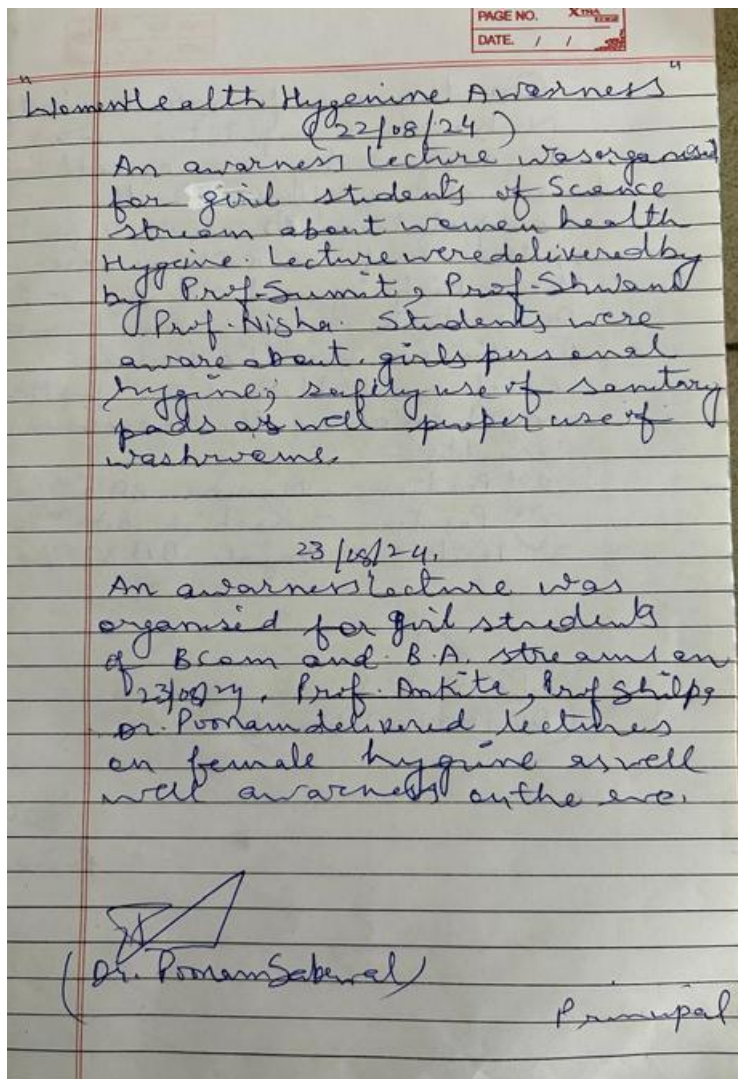 PAGE NO.
DATE. / /
"Women Health Hygenine Awarness"
(22/08/24)
An awarness lecture was organised
for girl students of Science
stream about women health
Hygeine. Lecture were delivered by
by Prof. Sumit, Prof. Shivani
Prof. Nisha. Students were
aware about girls personal
hygine, safely use of sanitary
pads as well proper use of
washrooms.
23/08/24.
An awarness lecture was
organised for girl students
of BCom and B.A. streams on
23/08/24. Prof. Ankita, Prof Shilpa
Dr. Poonam delivered lectures
on female hygine as well
well awarness on the eve.
(Dr. Poonam Saberwal)
Principal